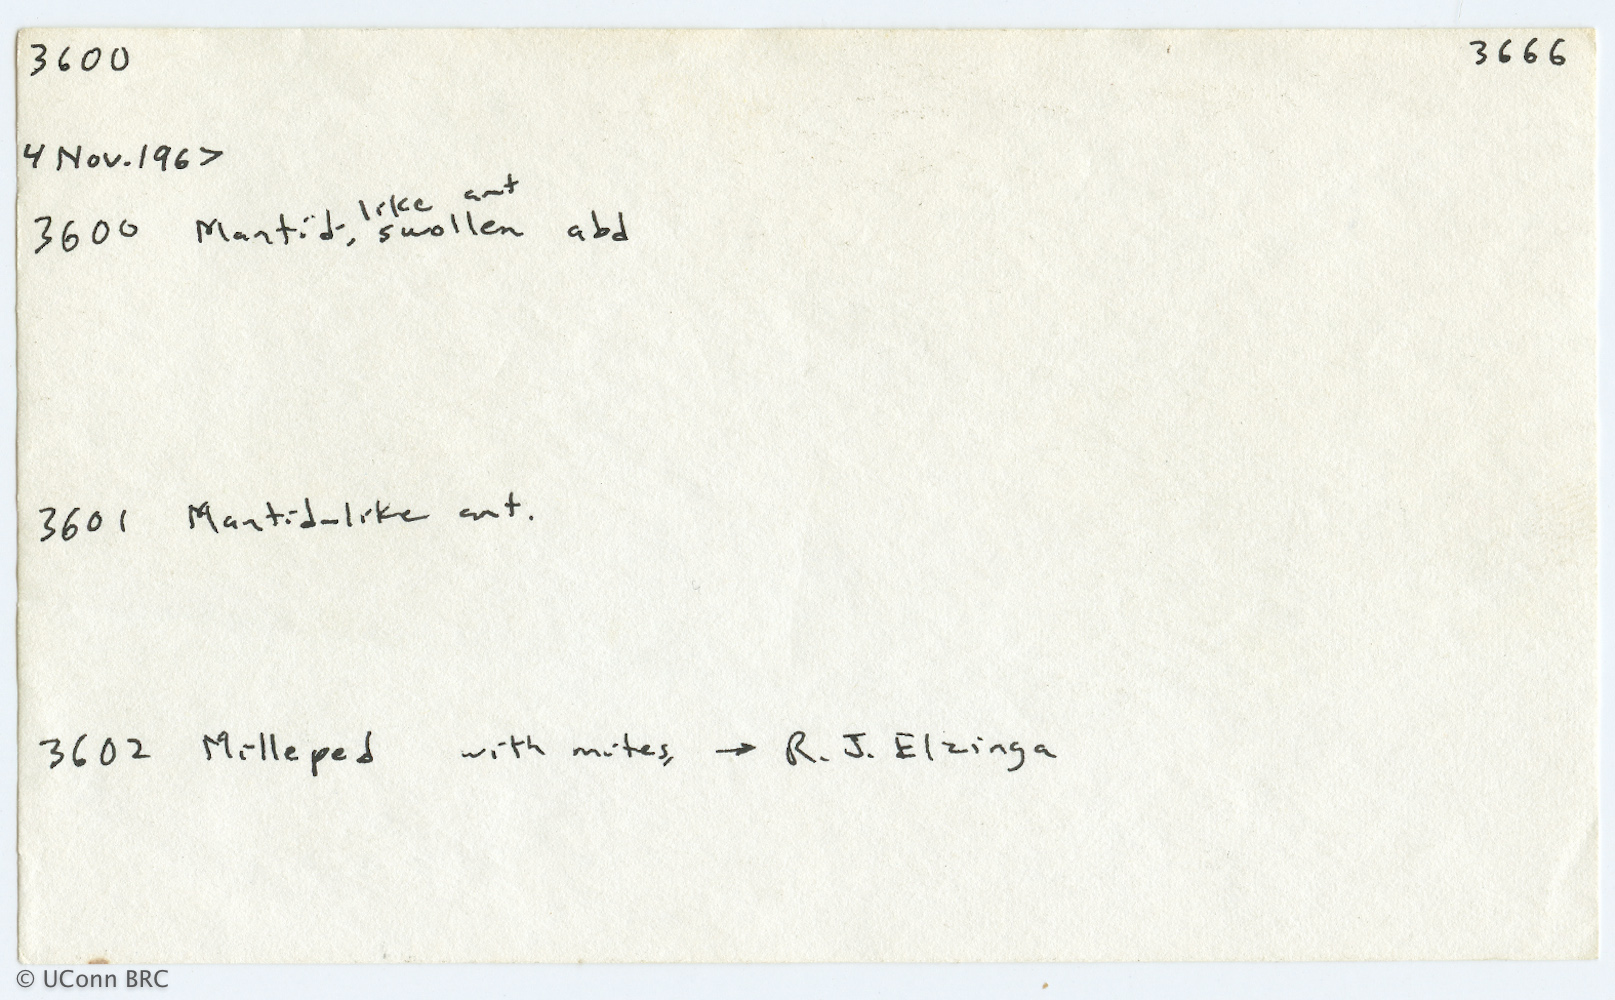 3600 3666
4 Nov. 1967
like ant
3600 Mantid-, swollen abd
3601 Mantid-like ant.
3602 Milleped with mites, → R. J. Elzinga
© UConn BRC